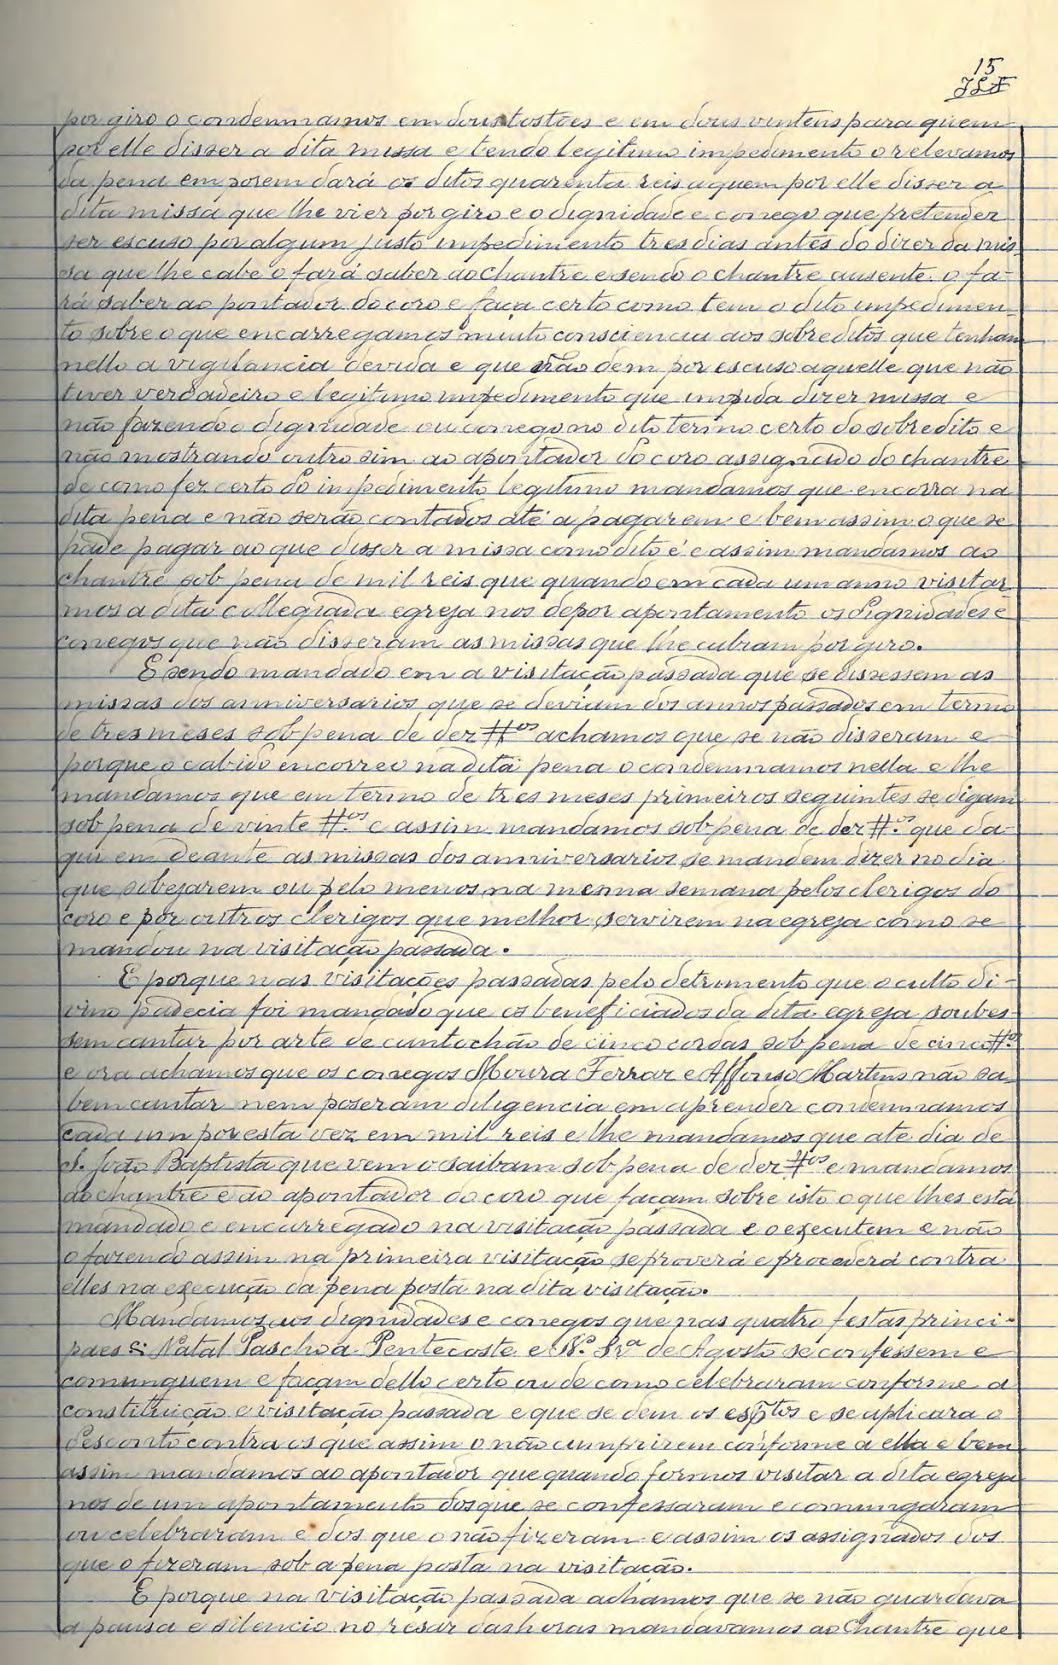 15
por giro o condemnamos em dous tostões e em dous vintens para quem
por elle disser a dita missa e tendo legitimo impedimento o relevamos
da pena em porem dará os ditos quarenta reis a quem por elle disser a
dita missa que lhe vier por giro e o dignidade e conego que pretender
ser escuso por algum justo impedimento tres dias antes do dizer da mis-
sa que lhe cabe o fará saber ao chantre e sendo o chantre ausente o fa-
rá saber ao pontador do coro e faça certo como tem o dito impedimen-
to sobre o que encarregamos muito consciencia aos sobreditos que tenham
nello a vigilancia devida e que não dem por escuso aquelle que não
tiver verdadeiro e legitimo impedimento que impida dizer missa e
não fazendo o dignidade ou conego no dito termo certo do sobredito e
não mostrando outro sim ao apontador do coro assignado do chantre
de como fez certo do impedimento legitimo mandamos que encorra na
dita pena e não serão contados até a pagarem e bem assim o que se
hade pagar ao que disser a missa como dito é e assim mandamos ao
chantre sob pena de mil reis que quando em cada um anno visitar
mos a dita collegiada egreja nos de por apontamento os dignidades e
conegos que não disseram as missas que lhe cubram por giro.
E sendo mandado em a visitação passada que se dissessem as
missas dos anniversarios que se deviam dos annos passados em termo
de tres meses sob pena de dez #os achamos que se não disseram e
porque o cabido encorreo na dita pena o condemnamos nella e lhe
mandamos que em termo de tres meses primeiros seguintes se digam
sob pena de vinte #.os e assim mandamos sob pena de dez #.os que da-
qui em deante as missas dos anniversarios se mandem dizer no dia
que sobejarem ou pelo menos na mesma semana pelos clerigos do
coro e por outros clerigos que melhor servirem na egreja como se
mandou na visitação passada.
E porque nas visitações passadas pelo detrimento que o culto di-
vino padecia foi mandado que os beneficiados da dita egreja soubes-
sem cantar por arte de cantochão de cinco cordas sob pena de cinco #.os
e ora achamos que os conegos Moura Ferraz e Affonso Martins não sa-
bem cantar nem poseram diligencia em aprender condemnamos
cada um por esta vez em mil reis e lhe mandamos que ate dia de
S. João Baptista que vem o saibam sob pena de dez #os e mandamos
ao chantre e ao apontador do coro que façam sobre isto o que lhes está
mandado e encarregado na visitação passada e o executem e não
o fazendo assim na primeira visitação se proverá e procederá contra
elles na execução da pena posta na dita visitação.
Mandamos aos dignidades e conegos que nas quatro festas princi-
paes S: Natal Paschoa Pentecoste e N.ª Sr.ª de Agosto se confessem e
comunguem e façam dello certo ou de como celebraram conforme a
constituição e visitação passada e que se dem os esp̃tos e se aplicara o
desconto contra os que assim o não cumprirem conforme a ella e bem
assim mandamos ao apontador que quando formos visitar a dita egreja
nos de um apontamento dos que se confessaram e comungaram
ou celebraram e dos que o não fizeram e assim os assignados dos
que o fizeram sob a pena posta na visitação.
E porque na visitação passada achamos que se não guardava
a pausa e silencio no resar das horas mandavamos ao Chantre que